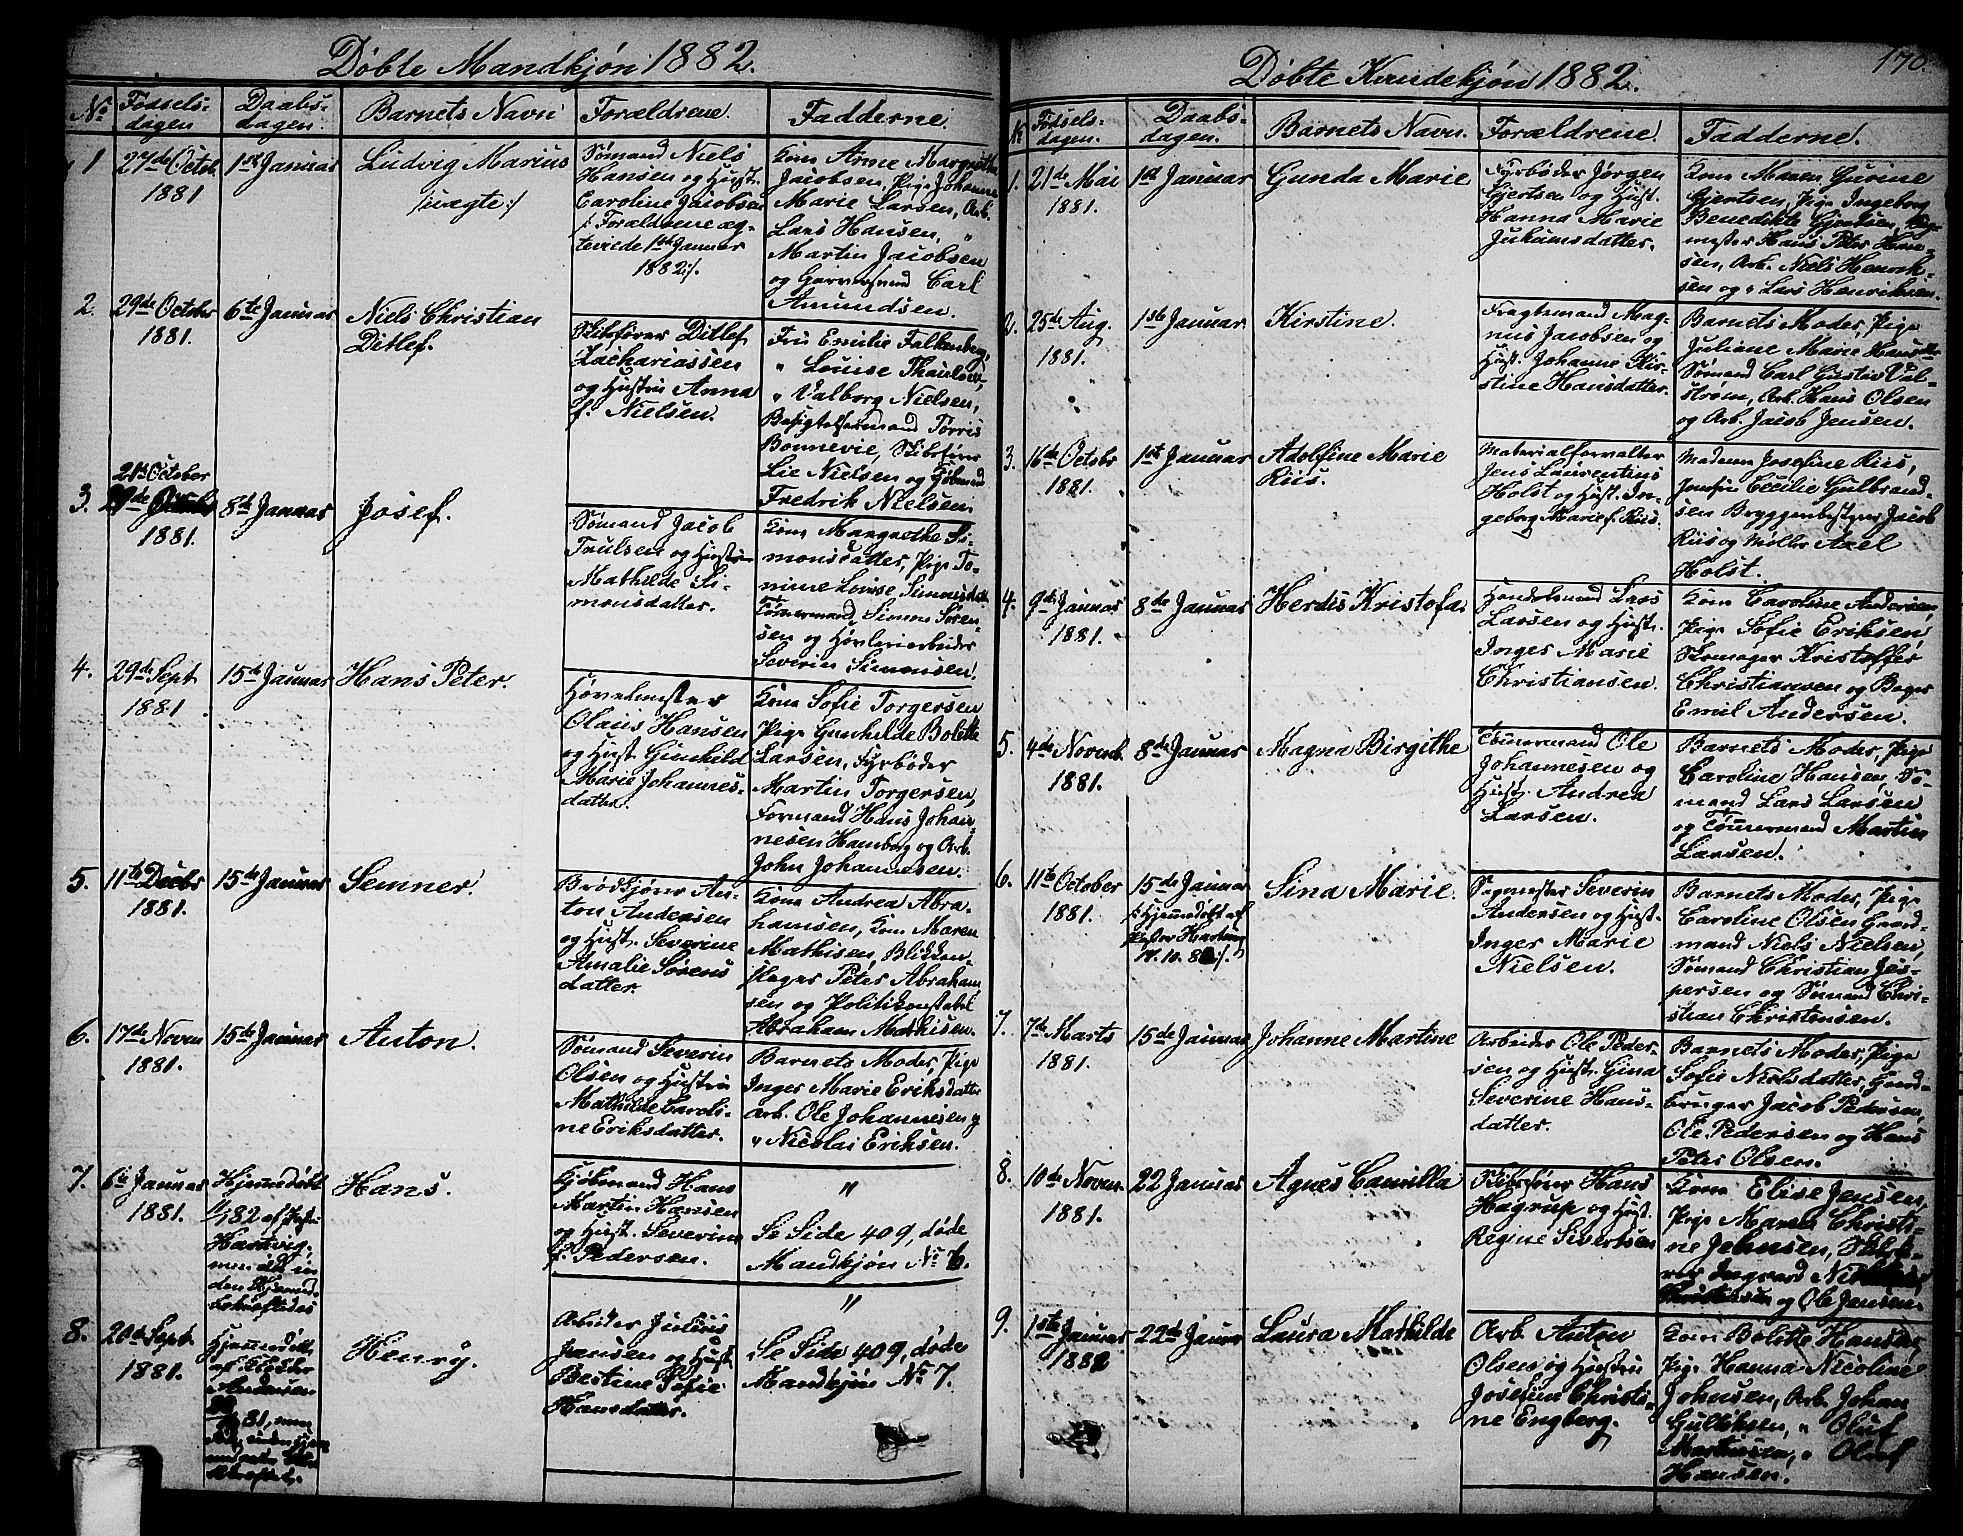 Døbte Mandkjøn 1882.
No Fødsels-dagen Daabs-dagen. Barnets Navn Forældrene. Fadderne.
1 27de Octob. 1881 1ste Januar Ludvig Marius
/:uægte:/
Sømand Niels
Hansen og Hust.
Caroline Jacobsen
/: Forældrene æg-
teviede 1ste Januar
1882:/.
Kone Anne Margrethe
Jacobsen, Pige Johanne
Marie Larsen, Arb.
Lars Hansen, "
Martin Jacobsen
og Carl
Amundsen.
2. 29de Octobr 1881. 6te Januar Niels Christian
Ditlef.
Skibsfører Ditlef
Zachariassen
og Hustru Anna
f. Nielsen.
Fru Emilie Falkenberg,
" Louise Thaulow,
" Valborg Nielsen,
Besigtelsesmand Tørris
Bonnevie, Skibsfører
Lie Nielsen og
Fredrik Nielsen.
3. 21de October 1881. 8de Januar Josef.
Sømand Jacob
Trulsen og Hustru
Mathilde Si-
monsdatter.
Kone Margrethe Si-
monsdatter, Pige To-
mine Lovise Simonsdatter
Tømmermand Simon Søren-
sen og Høvleriarbeider
Severin Simonsen.
4. 29de Sept 1881 15de Januar Hans Peter.
Høvelmester
Olaus Hansen
og Hust. Gunhild
Marie Johannes-
datter.
Kone Sofie Torgersen
Pige Gunhilde Bolette
Larsen, Fyrbøder
Martin Torgersen,
Formand Hans Johan-
nesen Hamberg og Arb.
John Johannesen.
5. 11te Decbr 1881. 15de Januar Semner.
Brødkjører An-
ton Andersen
og Hust. Severine
Amalie Sørens
datter.
Kone Andrea Abra-
hamsen, Kone Maren
Mathisen, Blikken-
slager Peter Abraham
sen og Politikonstabel
Abraham Mathisen.
6. 17de Novem 1881. 15de Januar Anton.
Sømand Severin
Olsen og Hustru
Mathilde Caroli-
ne Eriksdatter.
Barnets Moder, Pige
Inger Marie Eriksdatter
Arb. Ole Johannesen og
" Nicolai Eriksen.
7. 6te Januar 1881. Hjemmedøbt
1/1 82 af Præsten
Hartvig,
men død in
den Hjemmed.
bekræftedes
Hans.
Kjøbmand Hans
Martin Hansen
og Hust. Severine
f. Pedersen.
"
Se Side 409, døde
Mandkjøn No 6.
8. 20de Sept. 1881. Hjemmedøbt
af
Andersen
81, men
Henry.
Arbeider Julius
Jansen og Hust.
Bertine Sofie
Hansdatter.
"
Se Side 409, døde
Mandkjøn No 7.
Døbte Kvindekjøn 1882.
170.
No Fødsels-dagen. Daabs-dagen. Barnets Navn. Forældrene. Fadderne.
1. 21de Mai 1881. 1ste Januar Gunda Marie
Fyrbøder Jørgen
Gjertsen og Hust.
Hanna Marie
Juhansdatter.
Kone Maren Gurine
Gjertsen, Pige Ingeborg
Benedikte Gjertsen,
mester Hans Peter Han-
sen, Arb. Niels Henrik-
sen og " Lars Henriksen.
2. 25de Aug. 1881. 1ste Januar Kirstine.
Fragtemand Mag-
nus Jacobsen og
Hust. Johanne Kir-
stine Hansdatter.
Barnets Moder, Pige
Juliane Marie Hansdtr
Sømand Carl Gustav Val-
strøm, Arb. Hans Olsen
og Arb. Jacob Jensen.
3. 16de Octobr 1881. 1ste Januar Adolfine Marie
Riis.
Materialforvalter
Jens Laurentius
Holst og Hust. In-
geborg Marie f. Riis.
Madame Josefine Riis,
Jomfru Cecilie Gulbrand-
sen Bryggeribestyrer Jacob
Riis og Møller Axel
Holst.
4. 9de Januar 1881. 8de Januar Herdis Kristofa.
Handelsmand Lars
Larsen og Hust.
Inger Marie
Christiansen.
Kone Caroline Andersen,
Pige Sofie Eriksen,
Skomager Kristoffer
Christiansen og Bager
Emil Andersen.
5. 4de Novemb. 1881. 8de Januar Magna Birgithe
Tømmermand Ole
Johannesen og
Hust. Andrea
Larsen.
Barnets Moder, Pige
Caroline Hansen, Sø-
mand Lars Larsen
og Tømmermand Martin
Larsen.
6. 11te October 1881. 15de Januar
/: Hjemmedøbt af
Præsten Hartvig
17.10.81:/.
Sina Marie.
Sagmester Severin
Andersen og Hust.
Inger Marie
Nielsen.
Barnets Moder, Pige
Caroline Olsen Gaard-
mand Niels Nielsen,
Sømand Christian Jes-
persen og Sømand Chri-
stian Christensen.
7. 7de Marts 1881. 15de Januar Johanne Martine
Arbeider Ole Peder-
sen og Hust. Gina
Severine Hans-
datter.
Barnets Moder, Pige
Sofie Nielsdatter, Gaard-
bruger Jacob Pedersen,
Ole Pedersen og Hans
Peter Olsen.
8. 10de Novem. 1881. 22 Januar Agnes Camilla
Skibsfører Hans
Hagrup og Hust.
Regine Sivertsen
Kone Elise Jensen,
Pige Maren Christi-
ne Johnsen,
Ingvard
og Ole Jensen.
9. 1ste Januar 1882 22de Januar Laura Mathilde
Arb. Anton
Olsen og Hustru
Josefine Christi-
ne Engberg.
Kone Bolette Hansen,
Pige Hanna Nicoline
Johnsen, Arb. Johan
Gulliksen, " Oluf
Markussen, " Oluf
Hansen.